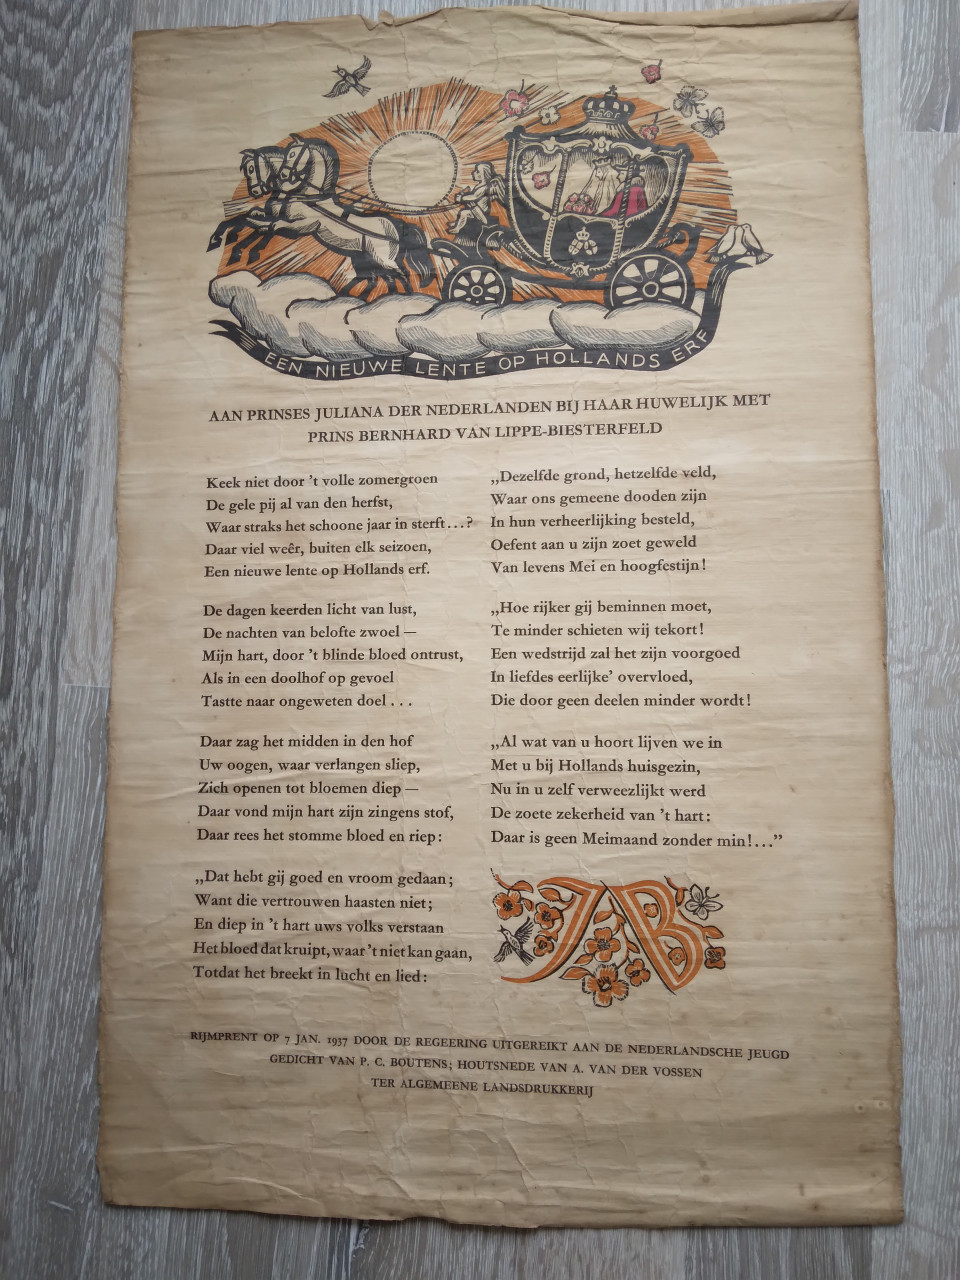 EEN NIEUWE LENTE OP HOLLANDS ERF
AAN PRINSES JULIANA DER NEDERLANDEN BIJ HAAR HUWELIJK MET
PRINS BERNHARD VAN LIPPE-BIESTERFELD
Keek niet door 't volle zomergroen
De gele pij al van den herfst,
Waar straks het schoone jaar in sterft...?
Daar viel weêr, buiten elk seizoen,
Een nieuwe lente op Hollands erf.
De dagen keerden licht van lust,
De nachten van belofte zwoel —
Mijn hart, door 't blinde bloed ontrust,
Als in een doolhof op gevoel
Tastte naar ongeweten doel . . .
Daar zag het midden in den hof
Uw oogen, waar verlangen sliep,
Zich openen tot bloemen diep —
Daar vond mijn hart zijn zingens stof,
Daar rees het stomme bloed en riep:
„Dat hebt gij goed en vroom gedaan;
Want die vertrouwen haasten niet;
En diep in 't hart uws volks verstaan
Het bloed dat kruipt, waar 't niet kan gaan,
Totdat het breekt in lucht en lied:
„Dezelfde grond, hetzelfde veld,
Waar ons gemeene dooden zijn
In hun verheerlijking besteld,
Oefent aan u zijn zoet geweld
Van levens Mei en hoogfestijn!
„Hoe rijker gij beminnen moet,
Te minder schieten wij tekort!
Een wedstrijd zal het zijn voorgoed
In liefdes eerlijke' overvloed,
Die door geen deelen minder wordt!
„Al wat van u hoort lijven we in
Met u bij Hollands huisgezin,
Nu in u zelf verweezlijkt werd
De zoete zekerheid van 't hart:
Daar is geen Meimaand zonder min!..."
JB
RIJMPRENT OP 7 JAN. 1937 DOOR DE REGEERING UITGEREIKT AAN DE NEDERLANDSCHE JEUGD
GEDICHT VAN P. C. BOUTENS; HOUTSNEDE VAN A. VAN DER VOSSEN
TER ALGEMEENE LANDSDRUKKERIJ